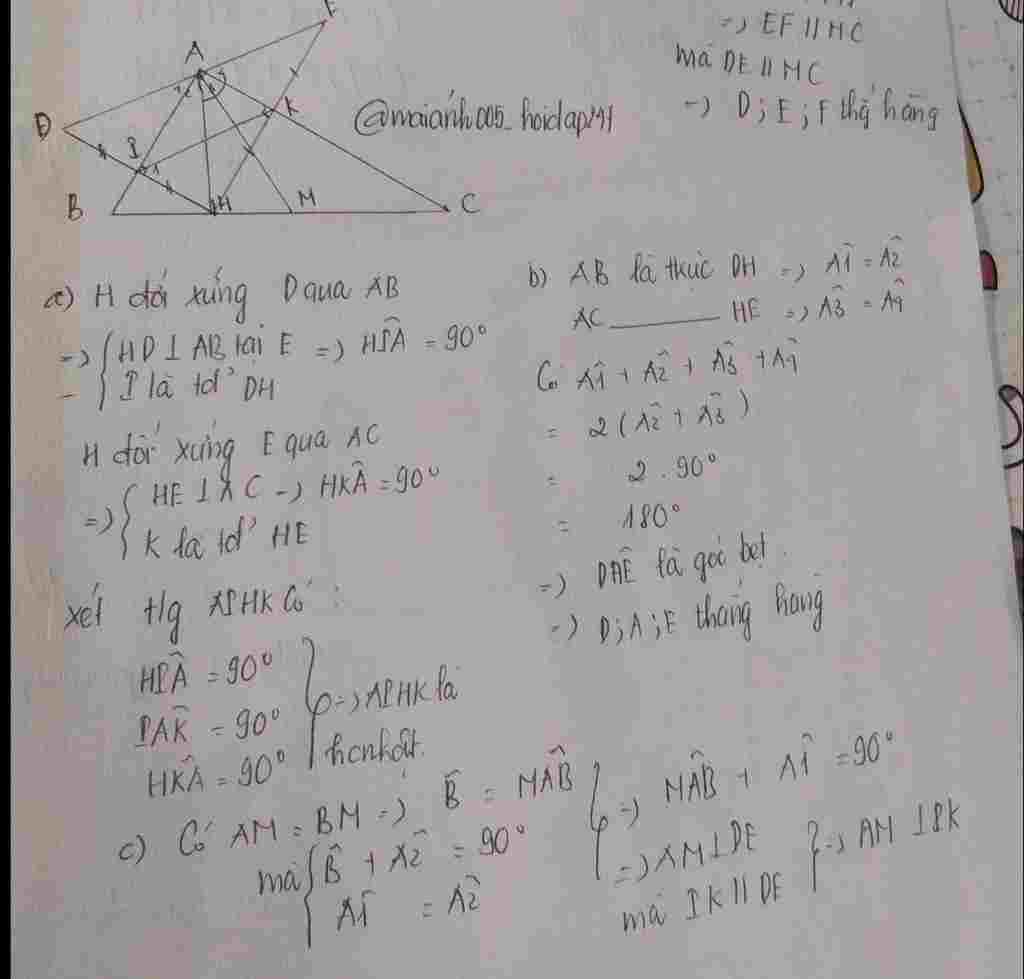 =) EF // HC
mà DE // MC
-) D; E; F thg̉ hàng
@maiánh005_hoidap247
F
A
D
I
K
B
H
M
C
a) H đối xứng D qua AB
=) { HD ⊥ AB tại E =) HIA^ = 90°
I là tđ' DH
H đối xứng E qua AC
=) { HE ⊥ AC -) HKA^ = 90°
K là tđ' HE
xét tfg AIHK Có :
HIA^ = 90°
IAK^ = 90° } =) AIHK là
HKA^ = 90° hcnhật.
b) AB là ttrực DH =) A1^ = A2^
AC ——— HE =) A3^ = A4^
Có A1^ + A2^ + A3^ + A4^
= 2 (A2^ + A3^)
= 2 . 90°
= 180°
=) DAE^ là góc bẹt.
-) D; A; E thẳng hàng
c) Có AM = BM =) B^ = MAB^
mà { B^ + A2^ = 90°
A1^ = A2^
=) MAB^ + A1^ = 90°
=) AM ⊥ DE
mà IK // DE } -) AM ⊥ IK